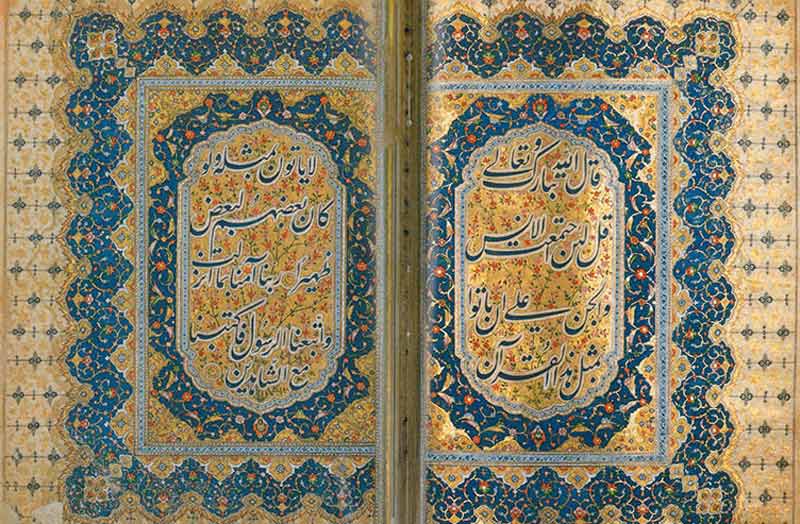 قال الله تبارک و تعالی
قل لئن اجتمعت الانس
و الجن علی ان یاتوا
بمثل هذا القرآن
لا یاتون بمثله ولو
کان بعضهم لبعض
ظهیرا ربنا آمنا بما انزلت
واتبعنا الرسول فاکتبنا
مع الشاهدین